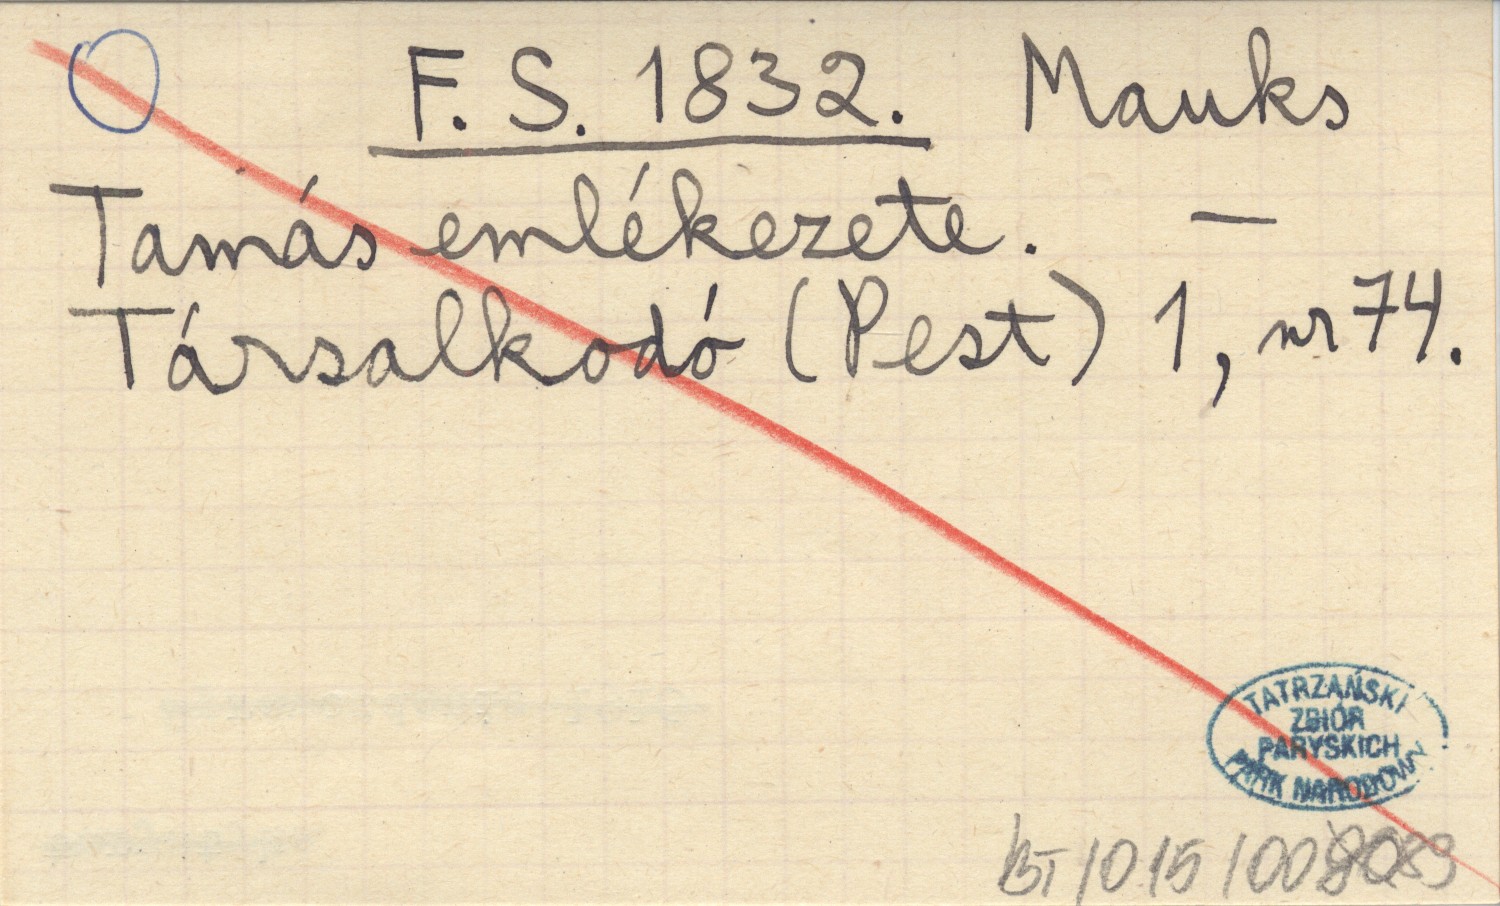 F. S. 1832. Mauks
Tamás emlékezete. —
Társalkodó (Pest) 1, nr 74.
TATRZAŃSKI
ZBIÓR
PARYSKICH
PARK NARODOWY
BT/015/008